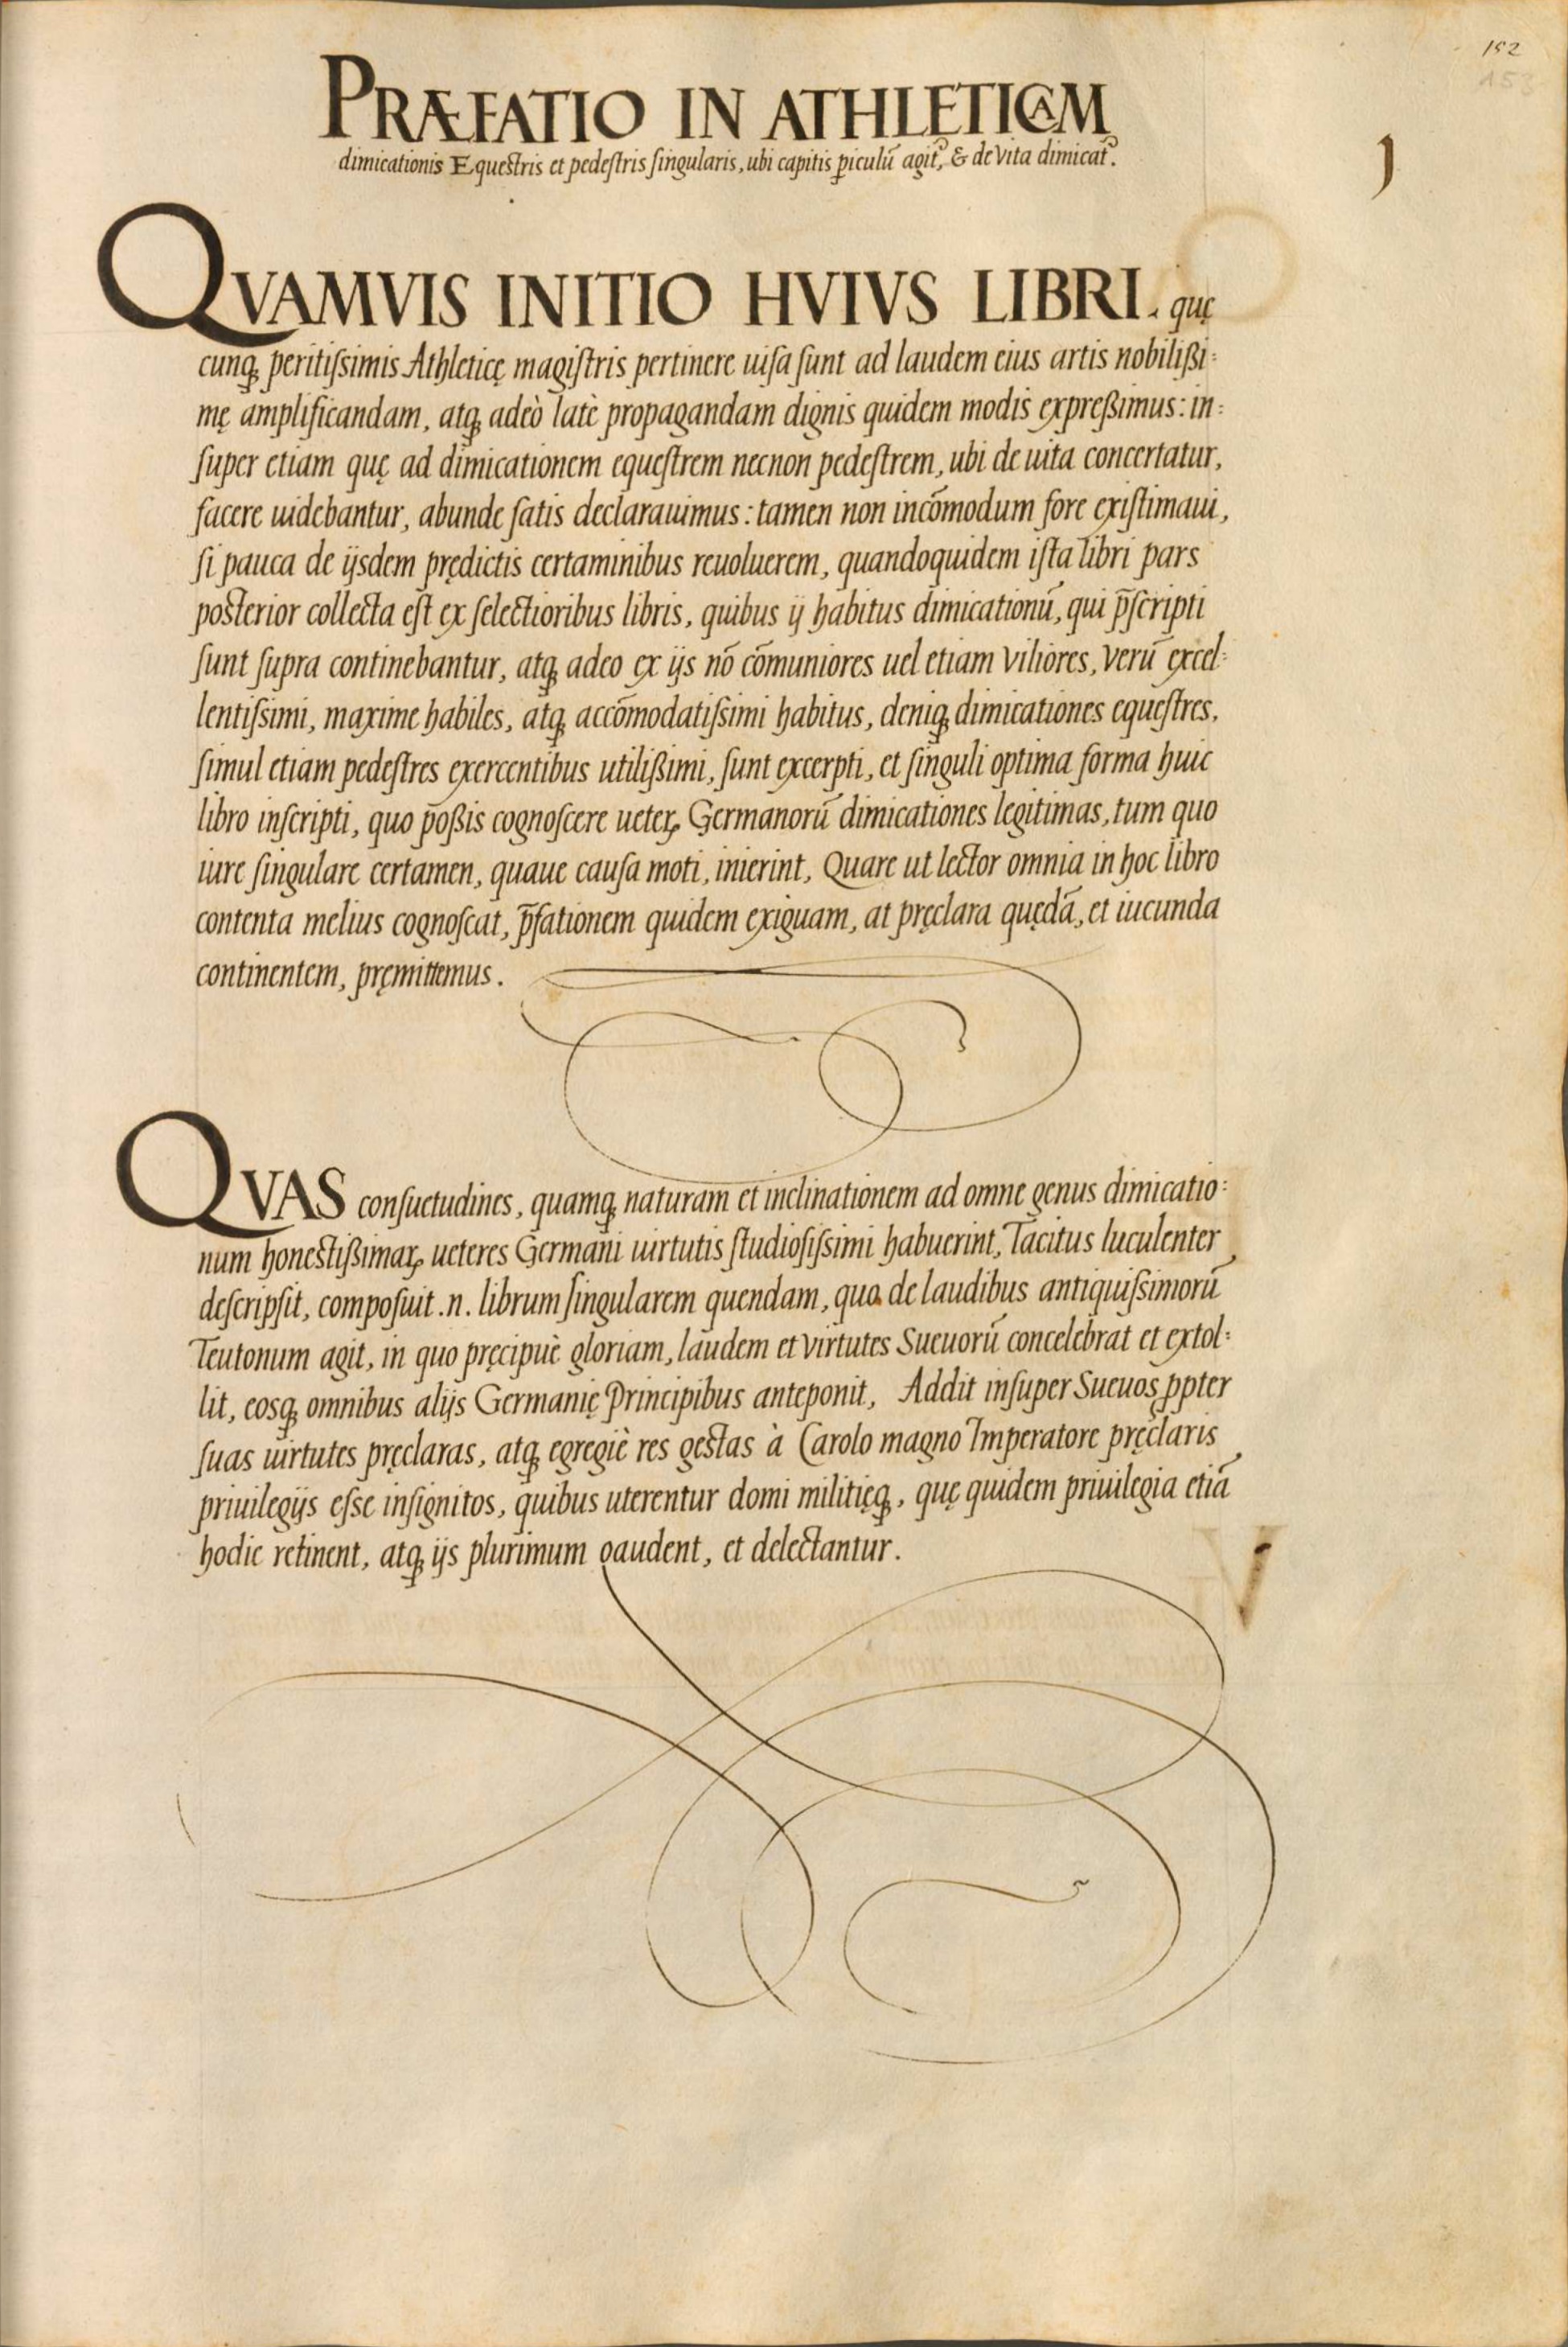 152
153
PRÆFATIO IN ATHLETICAM
dimicationis Equeſtris et pedeſtris ſingularis, ubi capitis ꝑiculū agit᷑, & de Vita dimicat᷑.
J
QVAMVIS INITIO HVIVS LIBRI. quę
cunqꝫ peritiſsimis Athleticę magiſtris pertinere uiſa ſunt ad laudem eius artis nobilißi:
mę amplificandam, atqꝫ adeò latè propagandam dignis quidem modis expreßimus: in:
ſuper etiam quę ad dimicationem equeſtrem necnon pedeſtrem, ubi de uita concertatur,
facere uidebantur, abunde ſatis declarauimus: tamen non incōmodum fore exiſtimaui,
ſi pauca de ijsdem prędictis certaminibus reuoluerem, quandoquidem iſta libri pars
poſterior collecta eſt ex ſelectioribus libris, quibus ij habitus dimicationū, qui p̄ſcripti
ſunt ſupra continebantur, atqꝫ adeo ex ijs nō cōmuniores uel etiam Viliores, Verū excel:
lentiſsimi, maxime habiles, atqꝫ accōmodatiſsimi habitus, deniqꝫ dimicationes equeſtres,
ſimul etiam pedeſtres exercentibus utilißimi, ſunt excerpti, et ſinguli optima forma huic
libro inſcripti, quo poßis cognoſcere ueteꝝ Germanorū dimicationes legitimas, tum quo
iure ſingulare certamen, quaue cauſa moti, inierint, Quare ut lector omnia in hoc libro
contenta melius cognoſcat, p̄fationem quidem exiguam, at pręclara quędā, et iucunda
continentem, pręmittemus.
QVAS conſuetudines, quamqꝫ naturam et inclinationem ad omne genus dimicatio:
num honeſtißimaꝝ ueteres Germani uirtutis ſtudioſiſsimi habuerint, Tacitus luculenter
deſcripſit, compoſuit .n. librum ſingularem quendam, quo de laudibus antiquiſsimorū
Teutonum agit, in quo pręcipuè gloriam, laudem et virtutes Sueuorū concelebrat et extol:
lit, eosqꝫ omnibus alijs Germanię Principibus anteponit, Addit inſuper Sueuos ꝓpter
ſuas uirtutes pręclaras, atqꝫ egregiè res geſtas à Carolo magno Imperatore pręclaris
priuilegijs eſse inſignitos, quibus uterentur domi militięqꝫ, quę quidem priuilegia etiā
hodie retinent, atqꝫ ijs plurimum gaudent, et delectantur.